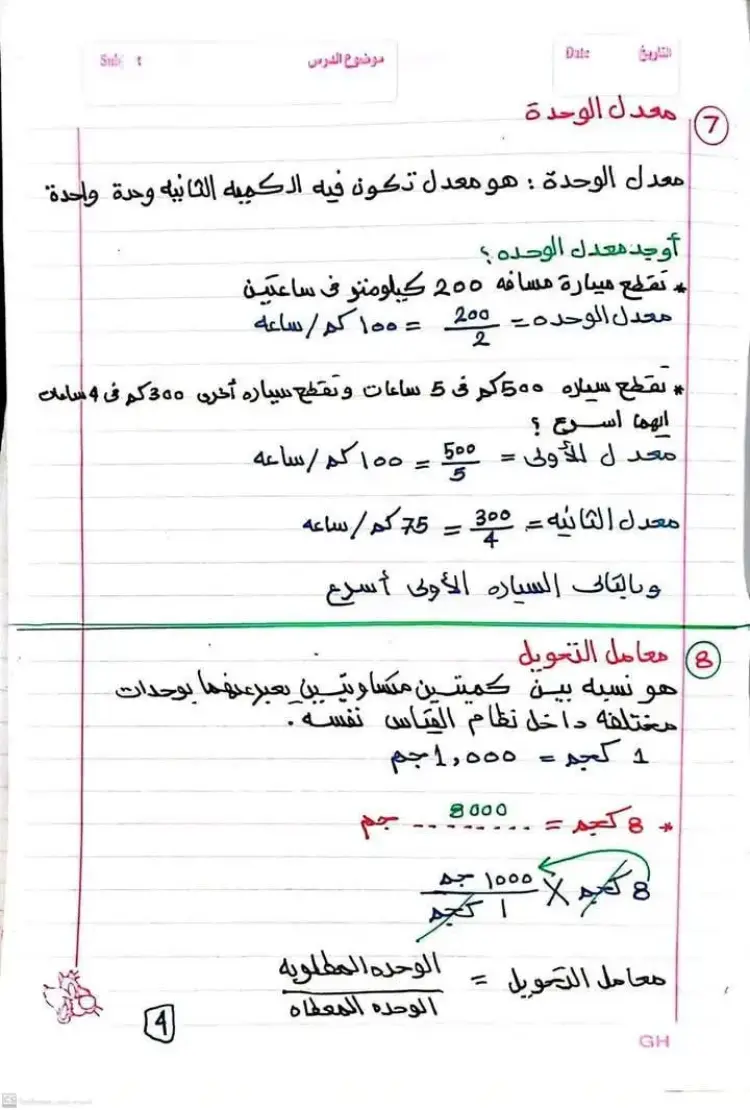 التاريخ Date
موضوع الدرس Sub t
7 معدل الوحدة
معدل الوحدة : هو معدل تكون فيه الكميه الثانيه وحدة واحدة
أوجد معدل الوحده ؟
* تقطع سيارة مسافه 200 كيلومتر فى ساعتين
معدل الوحده = 200/2 = 100 كم/ساعه
* تقطع سياره 500 كم فى 5 ساعات وتقطع سياره أخرى 300 كم فى 4 ساعات
ايهما اسرع ؟
معدل الأولى = 500/5 = 100 كم/ساعه
معدل الثانيه = 300/4 = 75 كم/ساعه
وبالتالى السياره الأولى أسرع
8 معامل التحويل
هو نسبه بين كميتين متساويتين يعبر عنهما بوحدات
مختلفه داخل نظام القياس نفسه .
1 كجم = 1,000 جم
* 8 كجم = ....8000.... جم
8 كجم × 1000 جم / 1 كجم
معامل التحويل = الوحده المطلوبه / الوحده المعطاه
4
GH